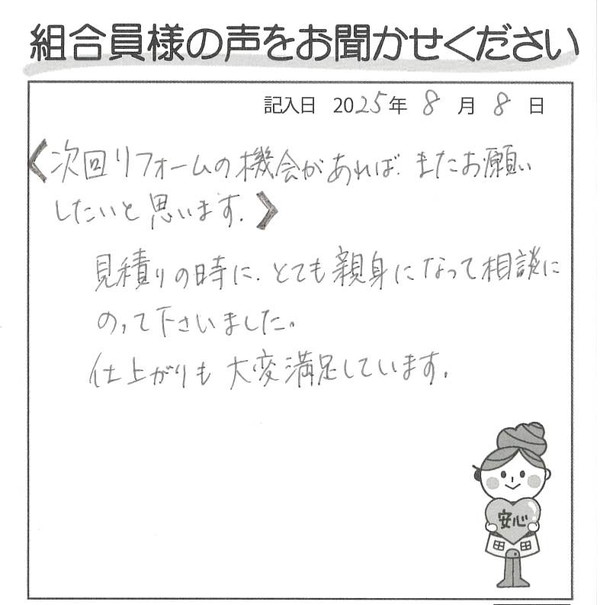 組合員様の声をお聞かせください
記入日 2025年 8 月 8 日
《次回リフォームの機会があれば、またお願い
したいと思います。》
見積りの時に、とても親身になって相談に
のって下さいました。
仕上がりも大変満足しています。
安心